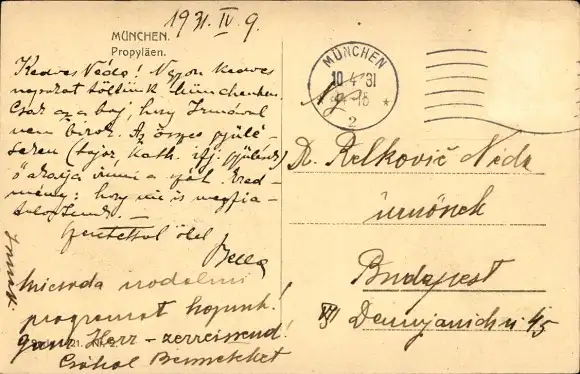 1931. IV. 9.
MÜNCHEN.
Propyläen.
Kedves Néda! Nagyon kedves
napokat töltünk Münchenben.
Csak az a baj, hogy Irmával
nem birok. Az összes gyülé-
seken (bajor, kath. ifj. gyülések)
ő akarja vinni a szót. Ered-
mény: hogy mi is megfia-
talodtunk. —
Szeretettel ölel
Bella
micsoda irodalmi
programot kapunk!
ganz Herz-zerreissend!
Csókol Benneteket
Irma
MÜNCHEN
10.4.31
2
D. Relkovič Néda
úrnőnek
Budapest
VII Damjanich u. 45